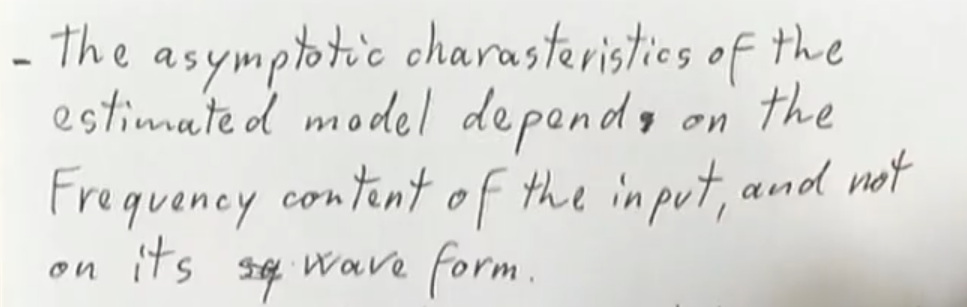 - The asymptotic charasteristics of the
estimated model depends on the
Frequency content of the input, and not
on its wave form.